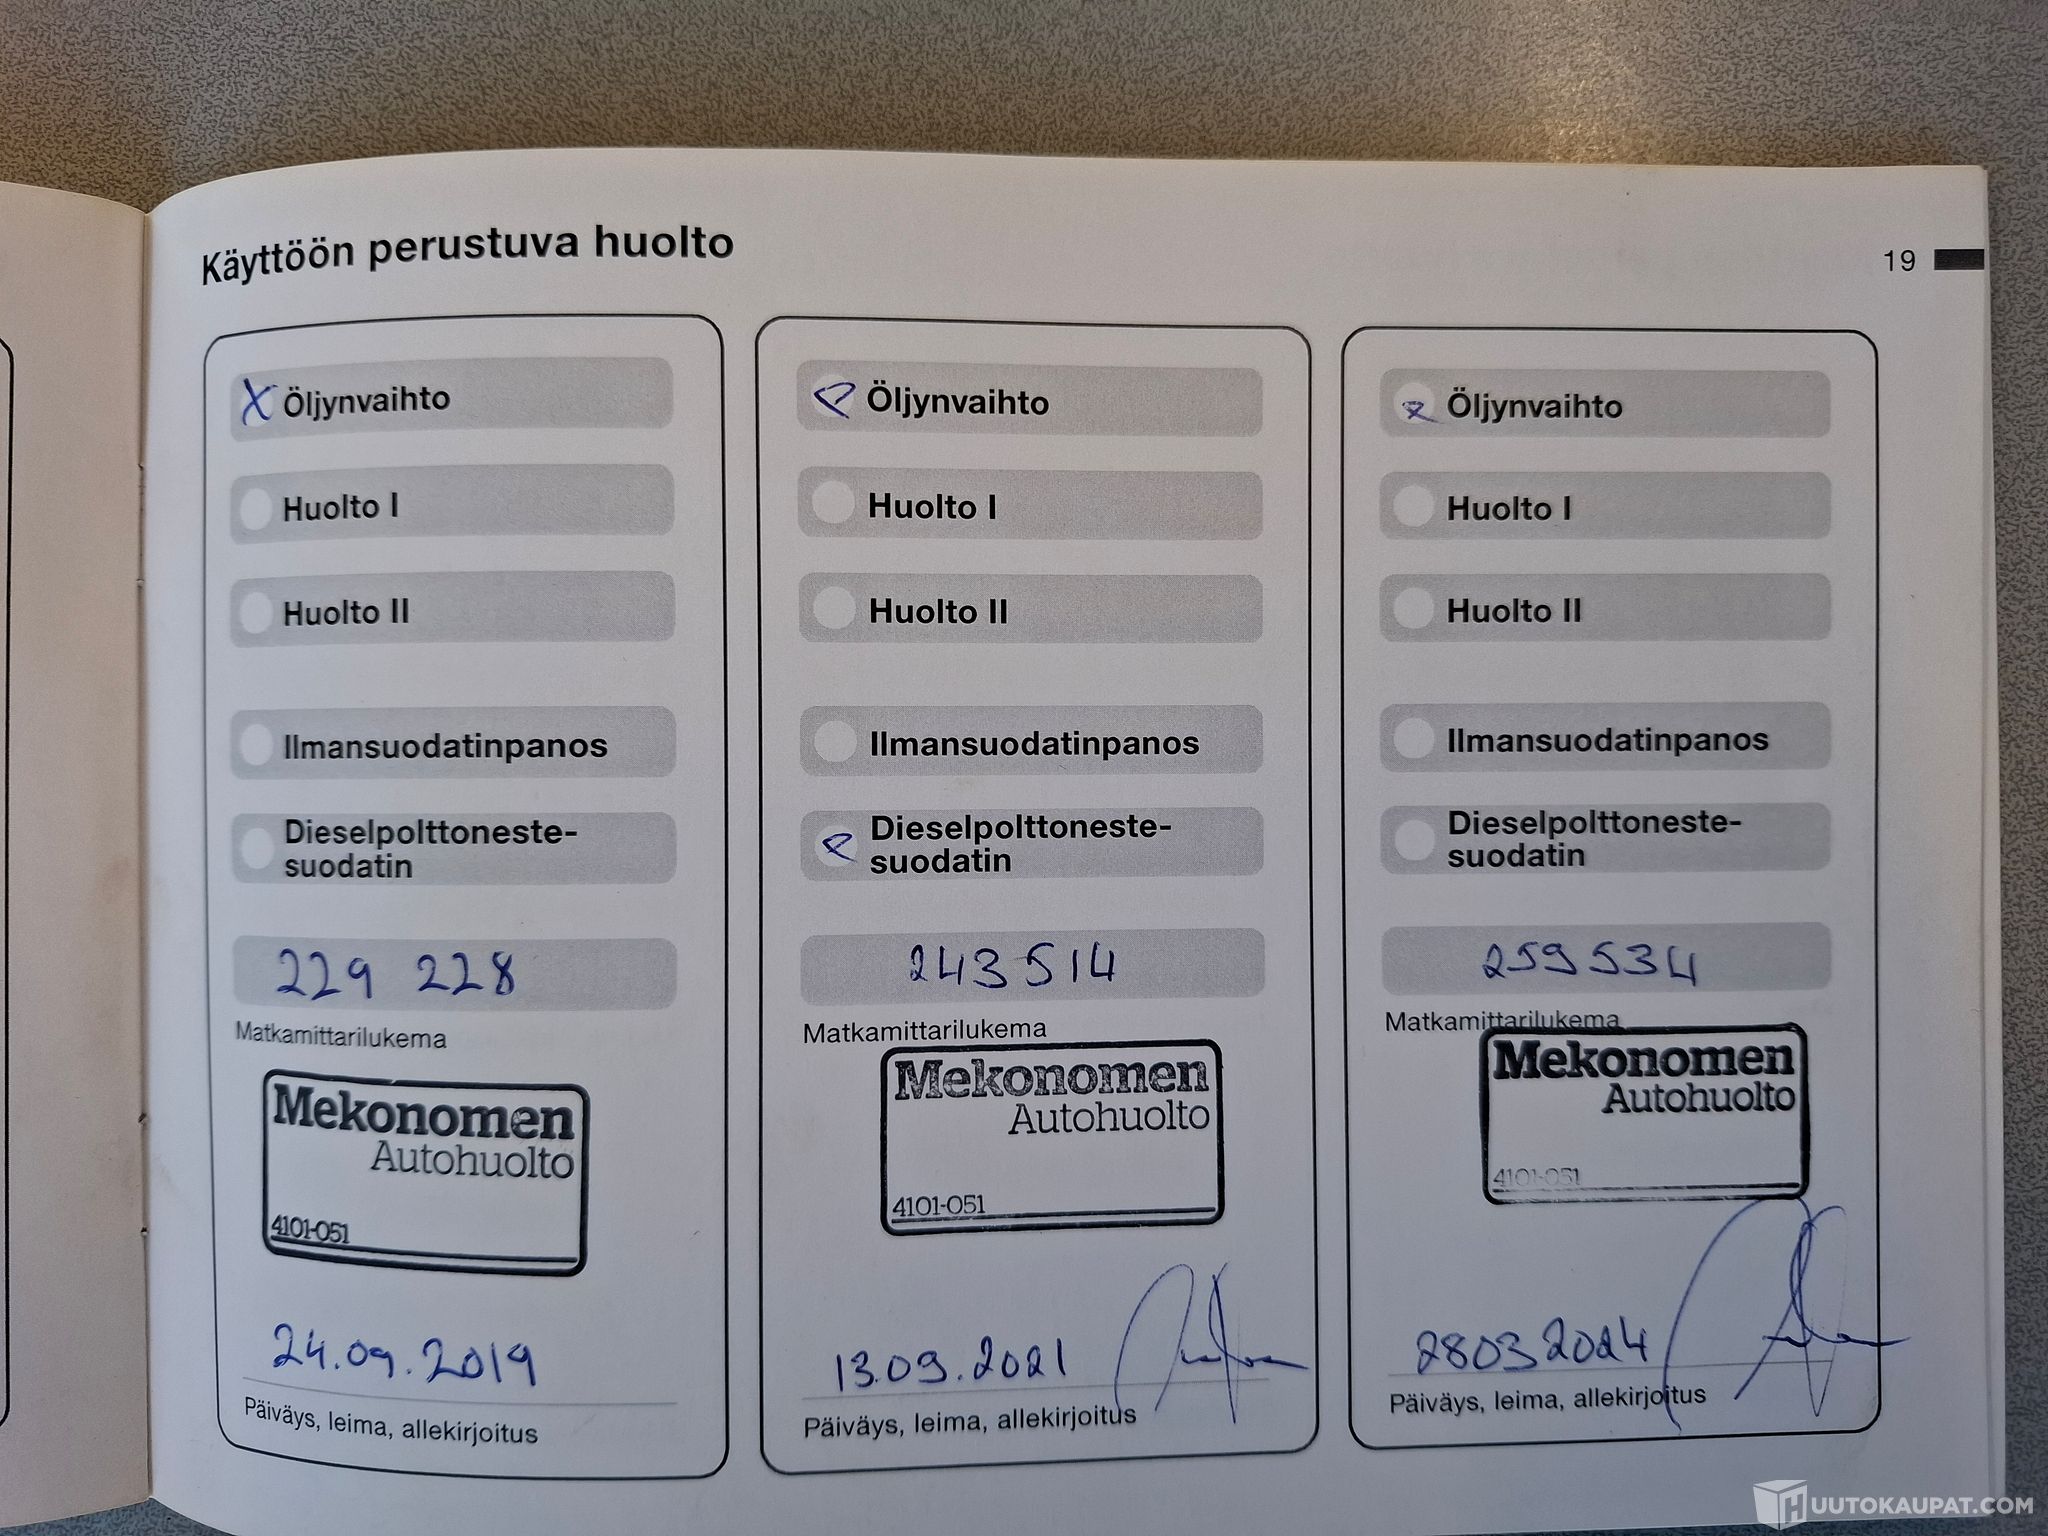 Käyttöön perustuva huolto
19
X Öljynvaihto
Huolto I
Huolto II
Ilmansuodatinpanos
Dieselpolttoneste-
suodatin
229 228
Matkamittarilukema
Mekonomen
Autohuolto
4101-051
24.09.2019
Päiväys, leima, allekirjoitus
Öljynvaihto
Huolto I
Huolto II
Ilmansuodatinpanos
Dieselpolttoneste-
suodatin
243514
Matkamittarilukema
Mekonomen
Autohuolto
4101-051
13.09.2021
Päiväys, leima, allekirjoitus
Öljynvaihto
Huolto I
Huolto II
Ilmansuodatinpanos
Dieselpolttoneste-
suodatin
259534
Matkamittarilukema
Mekonomen
Autohuolto
4101-051
28032024
Päiväys, leima, allekirjoitus
HUUTOKAUPAT.COM